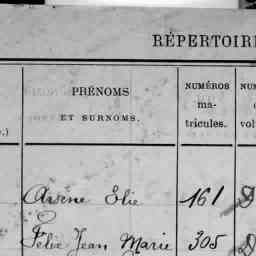 RÉPERTOIR
PRÉNOMS
ET SURNOMS.
NUMÉROS
ma-
tricules.
Arsène Elie 161
Félix Jean Marie 305